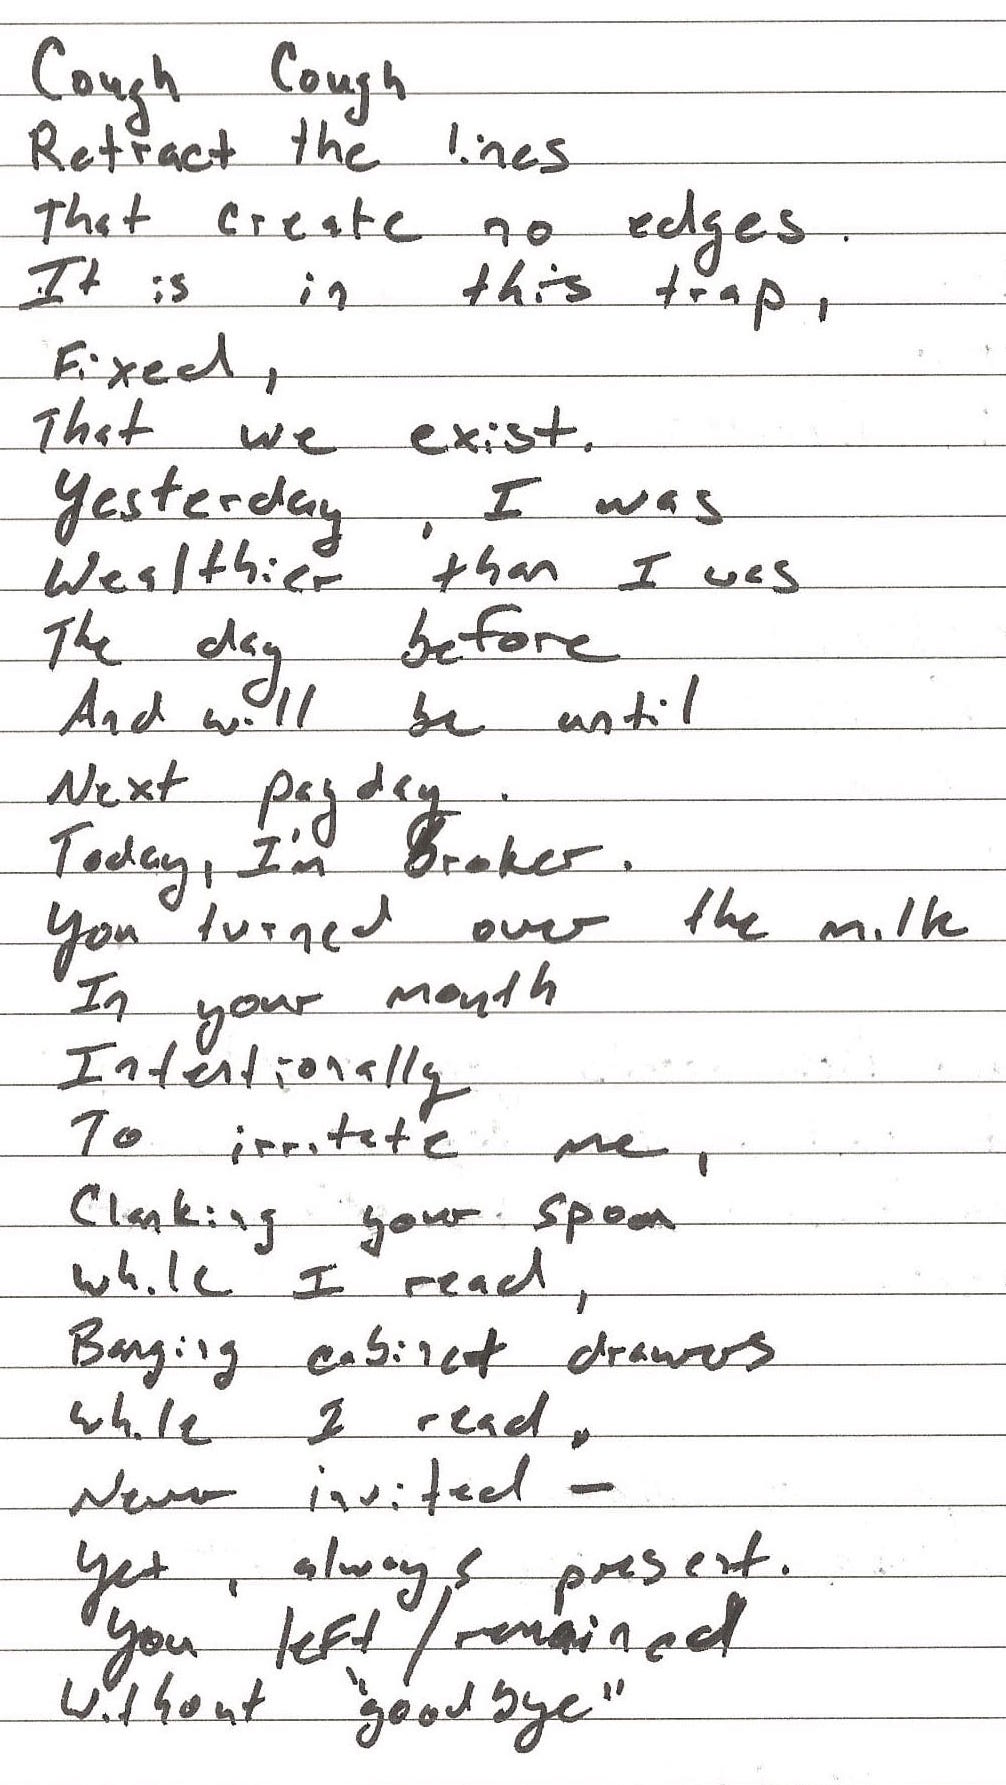 Cough Cough
Retract the lines
That create no edges.
It is in this trap,
Fixed,
That we exist.
Yesterday, I was
Wealthier than I was
The day before
And will be until
Next payday.
Today, I'm Broker.
You turned over the milk
In your mouth
Intentionally
To irritate me,
Clanking your spoon
While I read,
Banging cabinet drawers
While I read.
Never invited -
Yet, always present.
You left / remained
Without "goodbye"